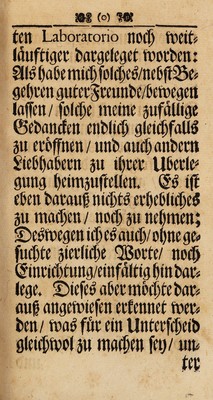 (o)
ten Laboratorio noch weit-
läuftiger dargeleget worden:
Als habe mich solches/nebst Be-
gehren guter Freunde/bewegen
lassen/ solche meine zufällige
Gedancken endlich gleichfalls
zu eröffnen/ und auch andern
Liebhabern zu ihrer Uberle-
gung heimzustellen. Es ist
eben darauß nichts erhebliches
zu machen/ noch zu nehmen:
Deswegen ich es auch/ ohne ge-
suchte zierliche Worte/ noch
Einrichtung/einfältig hin dar-
lege. Dieses aber möchte dar-
auß angewiesen erkennet wer-
den/ was für ein Unterscheid
gleichwol zu machen sey/ un-
ter